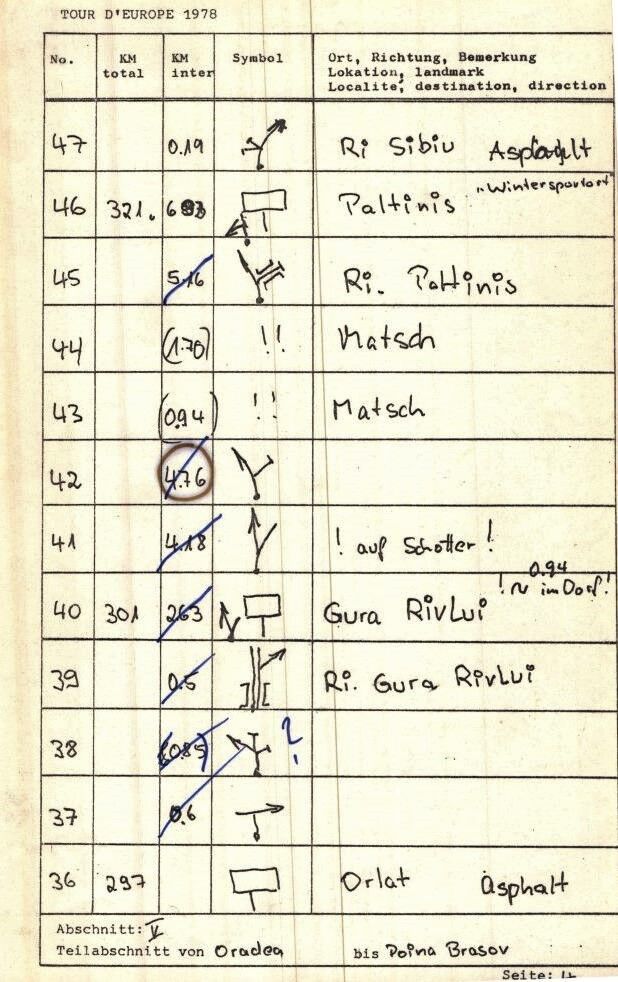 TOUR D'EUROPE 1978
No. KM total KM inter Symbol Ort, Richtung, Bemerkung
Lokation, landmark
Localite, destination, direction
47 0.19 Ri Sibiu Asphalt
"Wintersportort"
46 321. 6 Paltinis
45 5.16 Ri. Paltinis
44 (1.70) !! Matsch
43 (0.94) !! Matsch
42 4.76
41 4.18 ! auf Schotter!
0.94
! ~ im Dorf!
40 301 2.63 Gura RivLui
39 0.5 Ri. Gura RivLui
38 (0.85) ?
37 0.6
36 297 Orlat Asphalt
Abschnitt: V
Teilabschnitt von Oradea bis Poina Brasov
Seite: 4